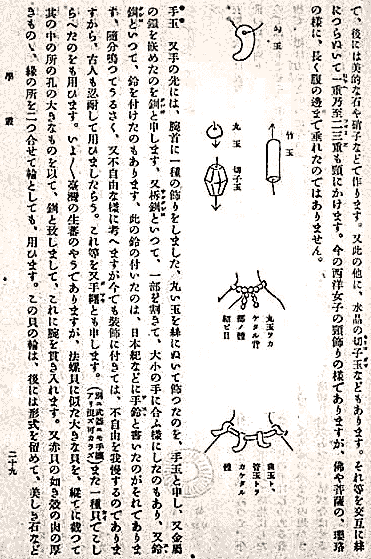 て、後には美的な石や硝子などで作ります。又此の他に、水晶の切子玉などもあります。それ等を交互に絲
につらぬいて一重乃至二三重も頸にかけます。今の西洋女子の頸飾りの様でありますが、佛や菩薩の、瓔珞
の様に、長く腹の邊まで垂れたのではありません。
勾玉
丸玉
切子玉
竹玉
丸玉ヲカ
ケタル背
部ノ
紐ヒ目
曲玉ト
管玉トヲ
カケタル
手玉 又手の先には、腕首に一種の飾りをしました、丸い玉を絲にぬいて飾つたのを、手玉と申し、又金屬
の鐶を嵌めたのを釧と申します。又桥釧といつて、一部を割きて、大小の手に合ふ様にしたのもあり、又鈴
釧といつて、鈴を付けたのもあります、此の鈴の付いたのは、日本紀などに手鈴と書いたのがそれでありま
す、隨分鳴つてうるさく、又不自由な様に考へますが今でも裝飾に付きては、不自由を我慢するのでありま
すから、古人も忍耐して用ひましたらう。これ等を又手纏とも申します。(別ニ武器ニモ手纏アリ混ズ可カラズ)また一種貝でこし
らへたのをも用ひます。いよ〱臺灣の生蕃のやうでありますが、法螺貝に似た大きな貝を、縱てに截つて
其の中の所の孔の大きなものを以て、釧と致しまして、これに腕を貫き入れます。又赤貝の如き殼の肉の厚
きものゝ、緣の所を二つ合せて輪としても、用ひます。この貝の輪は、後には形式を留めて、美しき石など
學叢
二十九